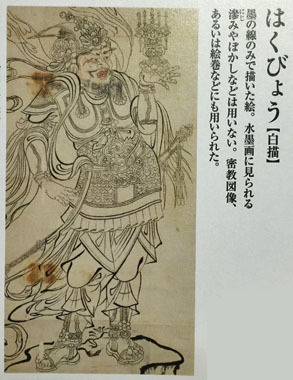 はくびょう【白描】
墨の線のみで描いた絵。水墨画に見られる
滲みやぼかしなどは用いない。密教図像、
あるいは絵巻などにも用いられた。